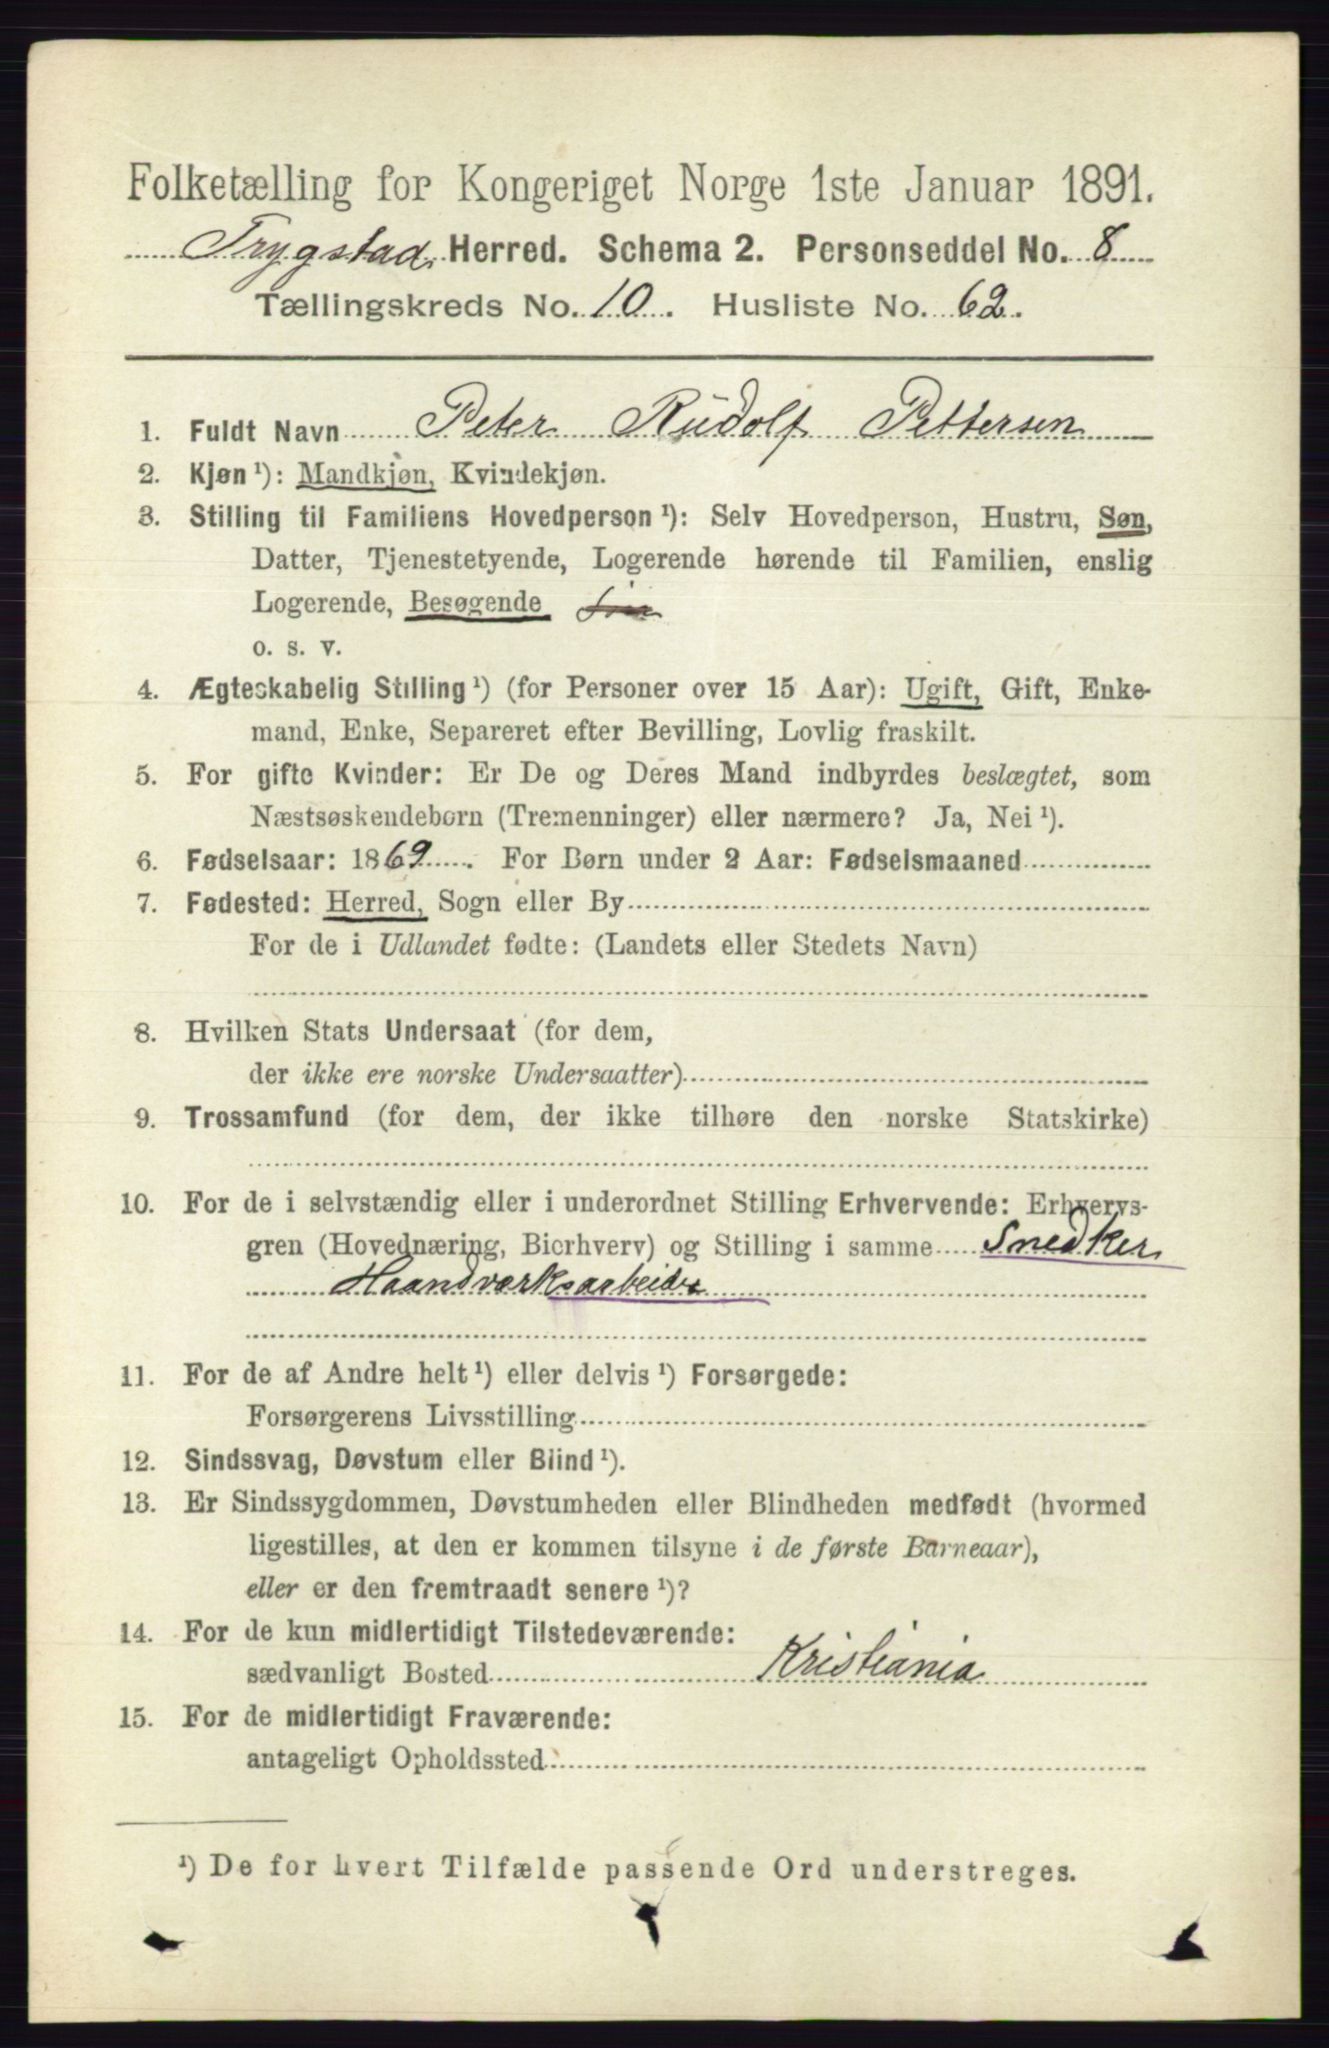 Folketælling for Kongeriget Norge 1ste Januar 1891.
Trygstad Herred. Schema 2. Personseddel No. 8
Tællingskreds No. 10. Husliste No. 62.
1. Fuldt Navn Peter Rüdolf Pettersen
2. Kjøn ¹): Mandkjøn, Kvindekjøn.
3. Stilling til Familiens Hovedperson ¹): Selv Hovedperson, Hustru, Søn,
Datter, Tjenestetyende, Logerende hørende til Familien, enslig
Logerende, Besøgende
o. s. v.
4. Ægteskabelig Stilling ¹) (for Personer over 15 Aar): Ugift, Gift, Enke-
mand, Enke, Separeret efter Bevilling, Lovlig fraskilt.
5. For gifte Kvinder: Er De og Deres Mand indbyrdes beslægtet, som
Næstsøskendebørn (Tremenninger) eller nærmere? Ja, Nei ¹).
6. Fødselsaar: 1869. For Børn under 2 Aar: Fødselsmaaned
7. Fødested: Herred, Sogn eller By
For de i Udlandet fødte: (Landets eller Stedets Navn)
8. Hvilken Stats Undersaat (for dem,
der ikke ere norske Undersaatter)
9. Trossamfund (for dem, der ikke tilhøre den norske Statskirke)
10. For de i selvstændig eller i underordnet Stilling Erhvervende: Erhvervs-
gren (Hovednæring, Bierhverv) og Stilling i samme Snedker
Haandværksarbeider
11. For de af Andre helt ¹) eller delvis ¹) Forsørgede:
Forsørgerens Livsstilling
12. Sindssvag, Døvstum eller Blind ¹).
13. Er Sindssygdommen, Døvstumheden eller Blindheden medfødt (hvormed
ligestilles, at den er kommen tilsyne i de første Barneaar),
eller er den fremtraadt senere ¹)?
14. For de kun midlertidigt Tilstedeværende:
sædvanligt Bosted Kristiania
15. For de midlertidigt Fraværende:
antageligt Opholdssted
¹) De for hvert Tilfælde passende Ord understreges.